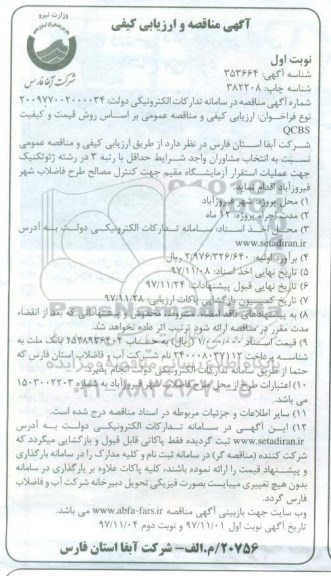 وزارت نیرو
شرکت آبفا فارس
آگهی مناقصه و ارزیابی کیفی
نوبت اول
شناسه آگهی: ۳۵۳۶۶۴
شناسه چاپ: ۳۸۲۲۰۸
شماره آگهی مناقصه در سامانه تدارکات الکترونیکی دولت: ۲۰۰۹۷۷۰۰۲۰۰۰۰۳۴
نوع فراخوان: ارزیابی کیفی و مناقصه عمومی بر اساس روش قیمت و کیفیت
QCBS
شرکت آبفا استان فارس در نظر دارد از طریق ارزیابی کیفی و مناقصه عمومی
نسبت به انتخاب مشاوران واجد شرایط حداقل با رتبه ۳ در رشته ژئوتکنیک
جهت عملیات استقرار آزمایشگاه مقیم جهت کنترل مصالح طرح فاضلاب شهر
فیروزآباد اقدام نماید.
۱) محل پروژه: شهر فیروزآباد
۲) مدت اجرای پروژه: ۱۲ ماه
۳) محل اخذ اسناد: سامانه تدارکات الکترونیکی دولت به آدرس
www.setadiran.ir
۴) برآورد اولیه: ۲/۹۷۶/۳۲۶/۶۴۰ ریال
۵) تاریخ نهایی اخذ اسناد: ۹۷/۱۱/۰۸
۶) تاریخ نهایی قبول پیشنهادات: ۹۷/۱۱/۲۴
۷) تاریخ کمیسیون بازگشایی پاکات ارزیابی: ۹۷/۱۱/۲۸
۸) به پیشنهادهای فاقد امضاء، مشروط، مخدوش و پیشنهاداتی که بعد از انقضاء
مدت مقرر در مناقصه ارائه شود ترتیب اثر داده نخواهد شد.
۹) قیمت اسناد ریال) به حساب بانک ملت به
شناسه پرداخت نام شرکت آب و فاضلاب استان فارس که
حتما از طریق سامانه تدارکات الکترونیکی دولت انجام پذیرد.
۱۰) اعتبارات طرح از محل طرح فاضلاب شهر فیروز آباد به شماره ۱۵۰۳۰۰۲۲۰۳
می باشد.
۱۱) سایر اطلاعات و جزئیات مربوطه در اسناد مناقصه درج شده است.
۱۲) این آگهی در سامانه تدارکات الکترونیکی دولت به آدرس
www.setadiran.ir ثبت گردیده فقط پاکاتی قابل قبول و بازگشایی میگردد که
شرکت کننده (مناقصه گر) در سامانه ثبت نام و کلیه مدارک را در سامانه بارگذاری
و پیشنهاد قیمت را ارائه نموده باشند، کلیه پاکات علاوه بر بارگذاری در سامانه
بدون هیچ تغییری میبایست بصورت فیزیکی تحویل دبیرخانه شرکت آب و فاضلاب
فارس گردد.
وب سایت جهت بازبینی آگهی مناقصه www.abfa-fars.ir می باشد.
تاریخ آگهی نوبت اول ۹۷/۱۱/۰۱ و نوبت دوم ۹۷/۱۱/۰۴
۲۰۷۵۶/م.الف- شرکت آبفا استان فارس